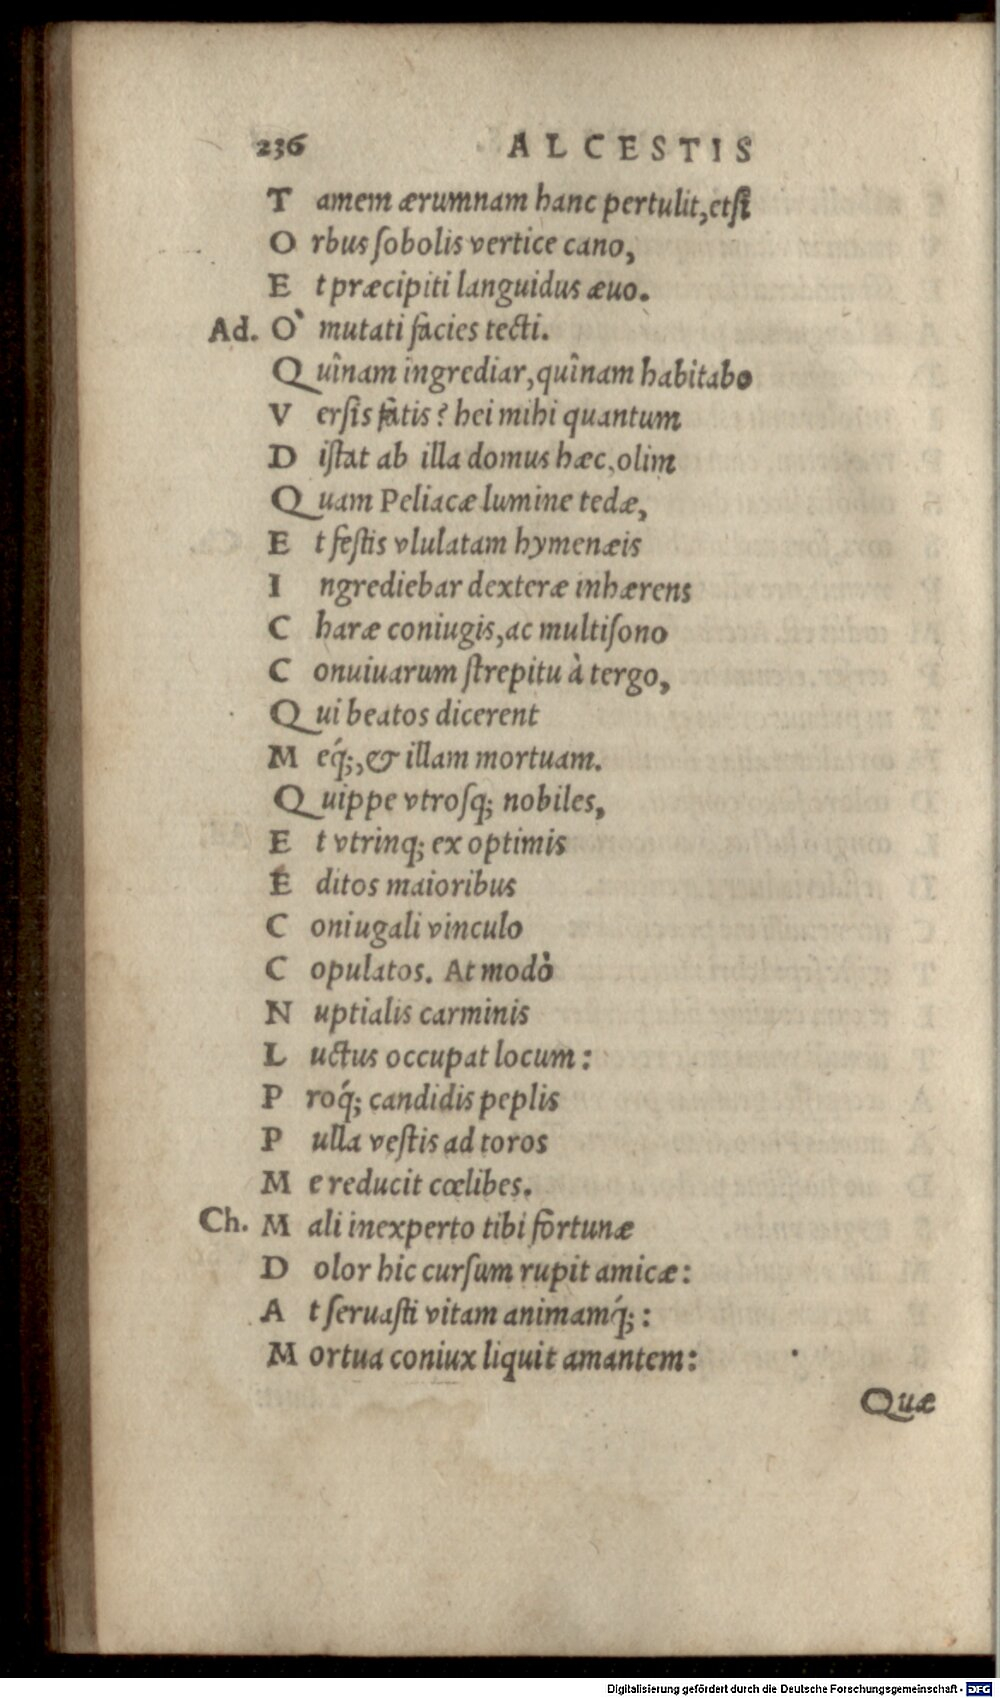 236 ALCESTIS
T amem ærumnam hanc pertulit, etſi
O rbus ſobolis vertice cano,
E t præcipiti languidus æuo.
Ad. O` mutati facies tecti.
Q uînam ingrediar, quînam habitabo
V erſis fatis? hei mihi quantum
D iſtat ab illa domus hæc, olim
Q uam Peliacæ lumine tedæ,
E t feſtis vlulatam hymenæis
I ngrediebar dexteræ inhærens
C haræ coniugis, ac multiſono
C onuiuarum ſtrepitu à tergo,
Q ui beatos dicerent
M eq́;, & illam mortuam.
Q uippe vtroſq; nobiles,
E t vtrinq; ex optimis
E ditos maioribus
C oniugali vinculo
C opulatos. At modò
N uptialis carminis
L uctus occupat locum:
P roq́; candidis peplis
P ulla veſtis ad toros
M e reducit cœlibes.
Ch. M ali inexperto tibi fortunæ
D olor hic curſum rupit amicæ:
A t ſeruaſti vitam animamq́;:
M ortua coniux liquit amantem:
Quæ
Digitalisierung gefördert durch die Deutsche Forschungsgemeinschaft - DFG